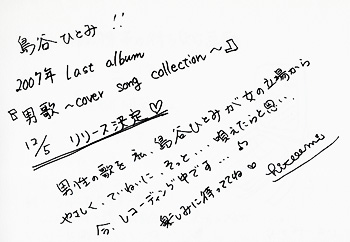 島谷ひとみ!!
2007年 Last album
『男歌 ~cover song collection~』
12/5 リリース決定♡
男性の歌を 私、島谷ひとみが女の立場から
やさしく、ていねいに、そっと... 唄えたらと思い、
今、レコーディング中です...♪
楽しみに待っててね♡